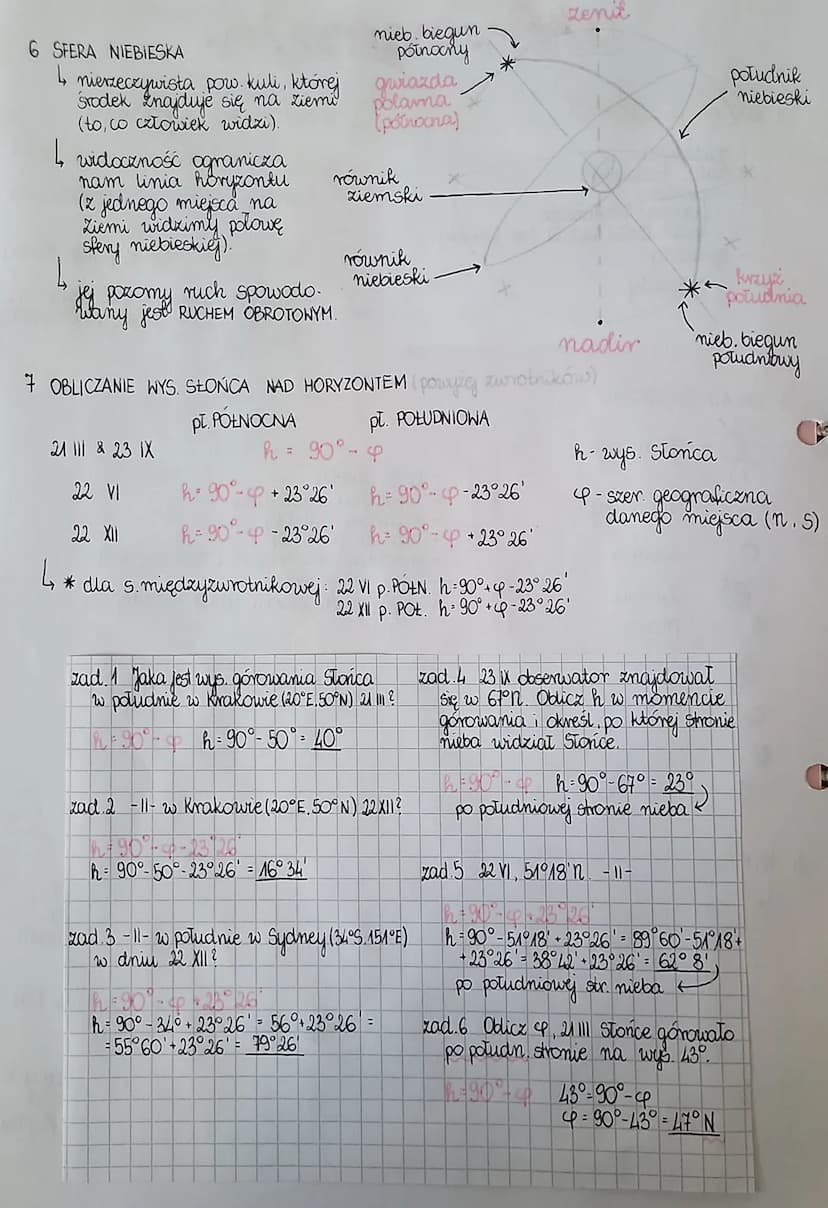 6 SFERA NIEBIESKA
↳ nierzeczywista pow. kuli, której
środek znajduje się na ziemi
(to, co człowiek widzi).
↳ widoczność ogranicza
nam linia horyzontu
(z jednego miejsca na
ziemi widzimy połowę
sfery niebieskiej).
↳ jej pozorny ruch spowodo-
wany jest RUCHEM OBROTOWYM.
zenit
nieb. biegun
północny
gwiazda
polarna
(północna)
południk
niebieski
równik
ziemski
równik
niebieski
krzyż
południa
nadir
nieb. biegun
południowy
7 OBLICZANIE WYS. SŁOŃCA NAD HORYZONTEM (powyżej zwrotników)
pł. PÓŁNOCNA pł. POŁUDNIOWA
21 III & 23 IX h = 90° - φ
22 VI h = 90° - φ + 23°26' h = 90° - φ - 23°26'
22 XII h = 90° - φ - 23°26' h = 90° - φ + 23°26'
h - wys. Słońca
φ - szer. geograficzna
danego miejsca (n, s)
↳ * dla s. międzyzwrotnikowej: 22 VI p. PÓŁN. h = 90° + φ - 23°26'
22 XII p. POŁ. h = 90° + φ - 23°26'
zad. 1 Jaka jest wys. górowania Słońca
w południe w Krakowie (20°E, 50°N) 21 III?
h = 90° - φ h = 90° - 50° = 40°
zad. 2 -||- w Krakowie (20°E, 50°N) 22 XII?
h = 90° - φ - 23°26'
h = 90° - 50° - 23°26' = 16°34'
zad. 3 -||- w południe w Sydney (34°S, 151°E)
w dniu 22 XII?
h = 90° - φ + 23°26'
h = 90° - 34° + 23°26' = 56° + 23°26' =
= 55°60' + 23°26' = 79°26'
zad. 4 23 IX obserwator znajdował
się w 67°n. Oblicz h w momencie
górowania i określ, po której stronie
nieba widział Słońce.
h = 90° - φ h = 90° - 67° = 23°
po południowej stronie nieba
zad. 5 22 VI, 51°18'n. -||-
h = 90° - φ + 23°26'
h = 90° - 51°18' + 23°26' = 89°60' - 51°18' +
+ 23°26' = 38°42' + 23°26' = 62°8'
po południowej str. nieba
zad. 6 Oblicz φ, 21 III Słońce górowało
po połudn. stronie na wys. 43°.
h = 90° - φ 43° = 90° - φ
φ = 90° - 43° = 47°N